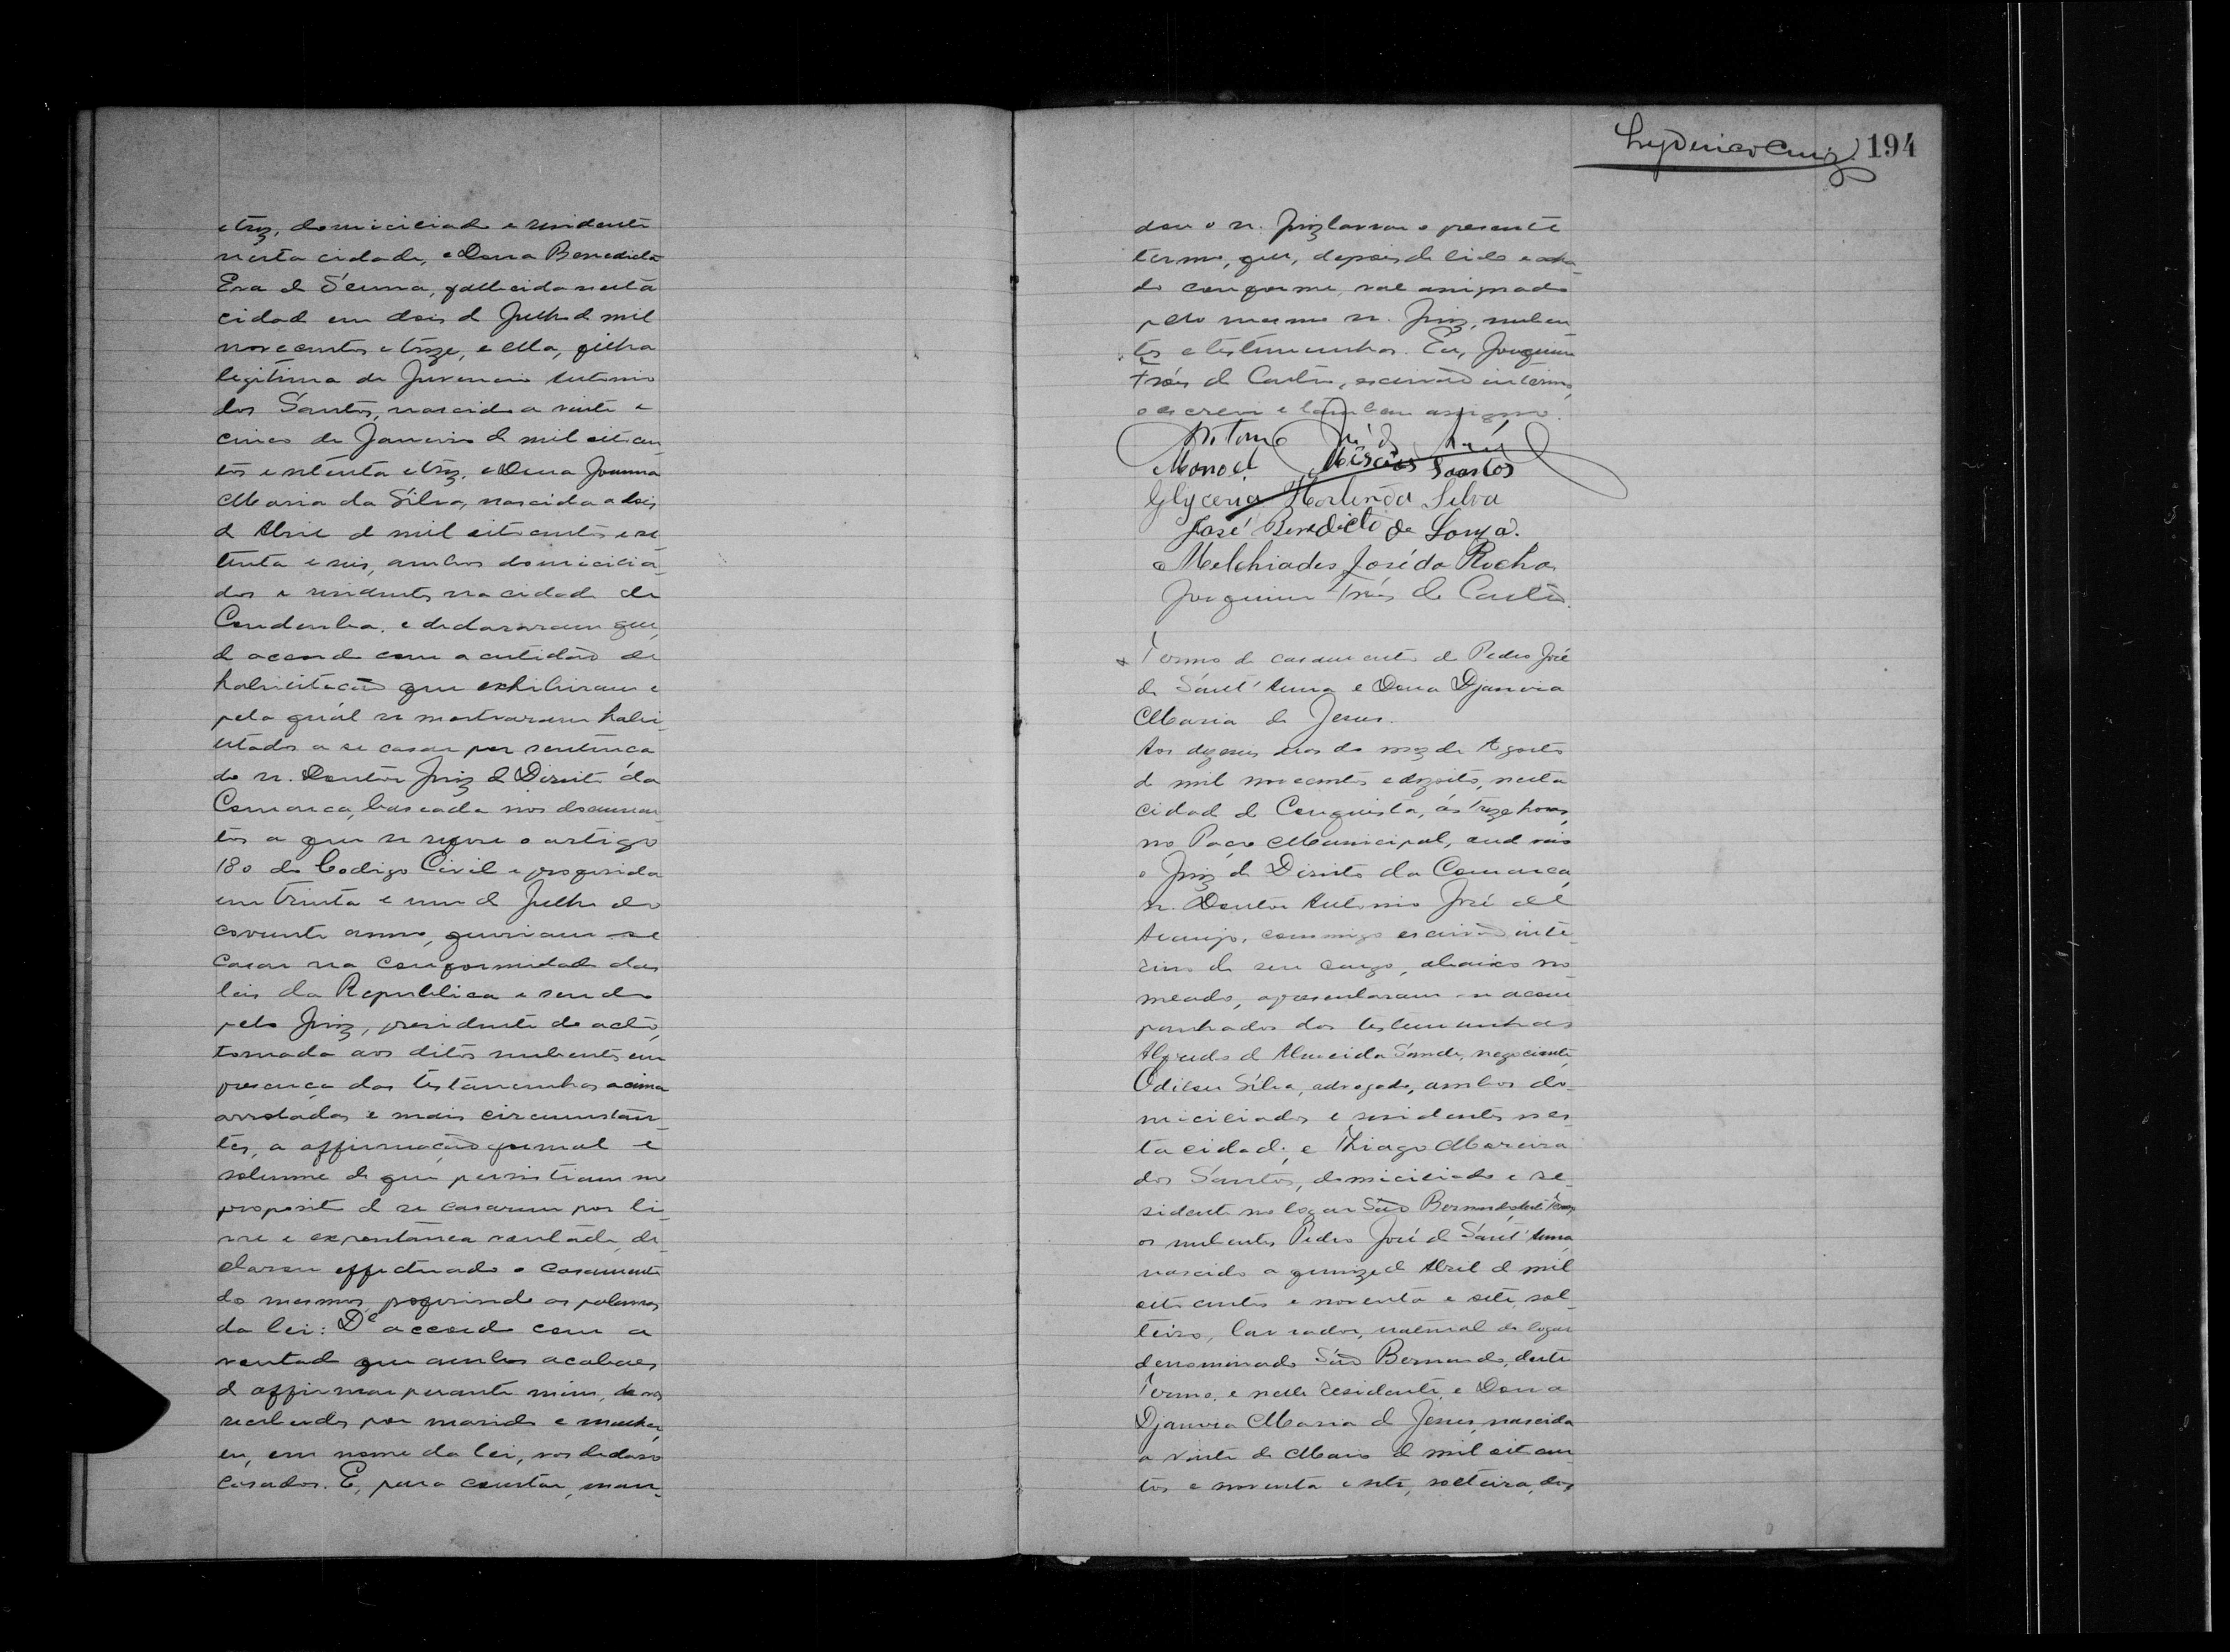 e trez, domiciliado e residente
nesta cidade, e Dona Benedicta
Eva de Senna, fallecida nesta
cidade em dois de Julho de mil
novecentos e treze, e ella, filha
legitima de Juvencio Antonio
dos Santos, nascido a vinte e
cinco de Janeiro de mil oitocen
tos e setenta e trez, e Dona Joanna
Maria da Silva, nascida a dois
de Abril de mil oitocentos e se
tenta e seis, ambos domicilia-
dos e residentes na cidade de
Condeuba, e declararam que,
de accordo com a certidão de
habilitação que exhibiram e
pela qual se mostraram habi
litados a se casar por sentença
do sr. Doutor Juiz de Direito da
Comarca, baseada nos documen
tos a que se refere o artigo
180 do Codigo Civil e proferida
em trinta e um de Julho do
corrente anno, queriam-se
casar na conformidade das
leis da Republica e sendo
pelo Juiz, presidente do acto,
tomada aos ditos nubentes em
presença das testemunhas acima
arroladas e mais circumstan-
tes, a affirmação formal e
solemne de que persistiam no
proposito de se casarem por li-
vre e expontanea vontade, de-
clarou effectuado o casamento
do mesmos, proferindo as palavras
da lei: De accordo com a
vontade que ambos acabaes
de affirmar perante mim, de vos
receberdes por marido e mulher,
eu, em nome da lei, vos declaro
casados. E, para constar, man-
Lyderico Cruz 194
dou o sr. Juiz lavrar o presente
termo, que, depois de lido e acha-
do conforme, vae assignado
pelo mesmo sr. Juiz, nuben
tes e testemunhas. Eu, Joaquim
Fróes de Castro, escrivão interino,
o escrevi e tambem assigno.
Antonio José de Araujo
Manoel Messias Santos
Glyceria Horlinda Silva
José Benedicto de Souza.
Melchiades José da Rocha
Joaquim Fróes de Castro.
Termo de casamento de Pedro José
de Sant'Anna e Dona Djanira
Maria de Jesus.
Aos dezeseis dias do mez de Agosto
de mil novecentos e dezoito, nesta
cidade de Conquista, ás treze horas,
no Paço Municipal, onde veio
o Juiz de Direito da Comarca,
sr. Doutor Antonio José de
Araujo, commigo escrivão inte-
rino de seu cargo, abaixo no-
meado, apresentaram-se acom
panhados das testemunhas
Alfredo de Almeida Sande, negociante
Odilon Silva, advogado, ambos do-
miciliados e residentes nes-
ta cidade, e Thiago Moreira
dos Santos, domiciliado e re-
sidente no logar São Bernardo, deste Termo,
os nubentes Pedro José de Sant'Anna,
nascido a quinze de Abril de mil
oitocentos e noventa e sete, sol-
teiro, lavrador, natural do logar
denominado São Bernardo, deste
Termo, e nelle residente, e Dona
Djanira Maria de Jesus, nascida
a vinte de Maio de mil oitocen
tos e noventa e sete, solteira, dos